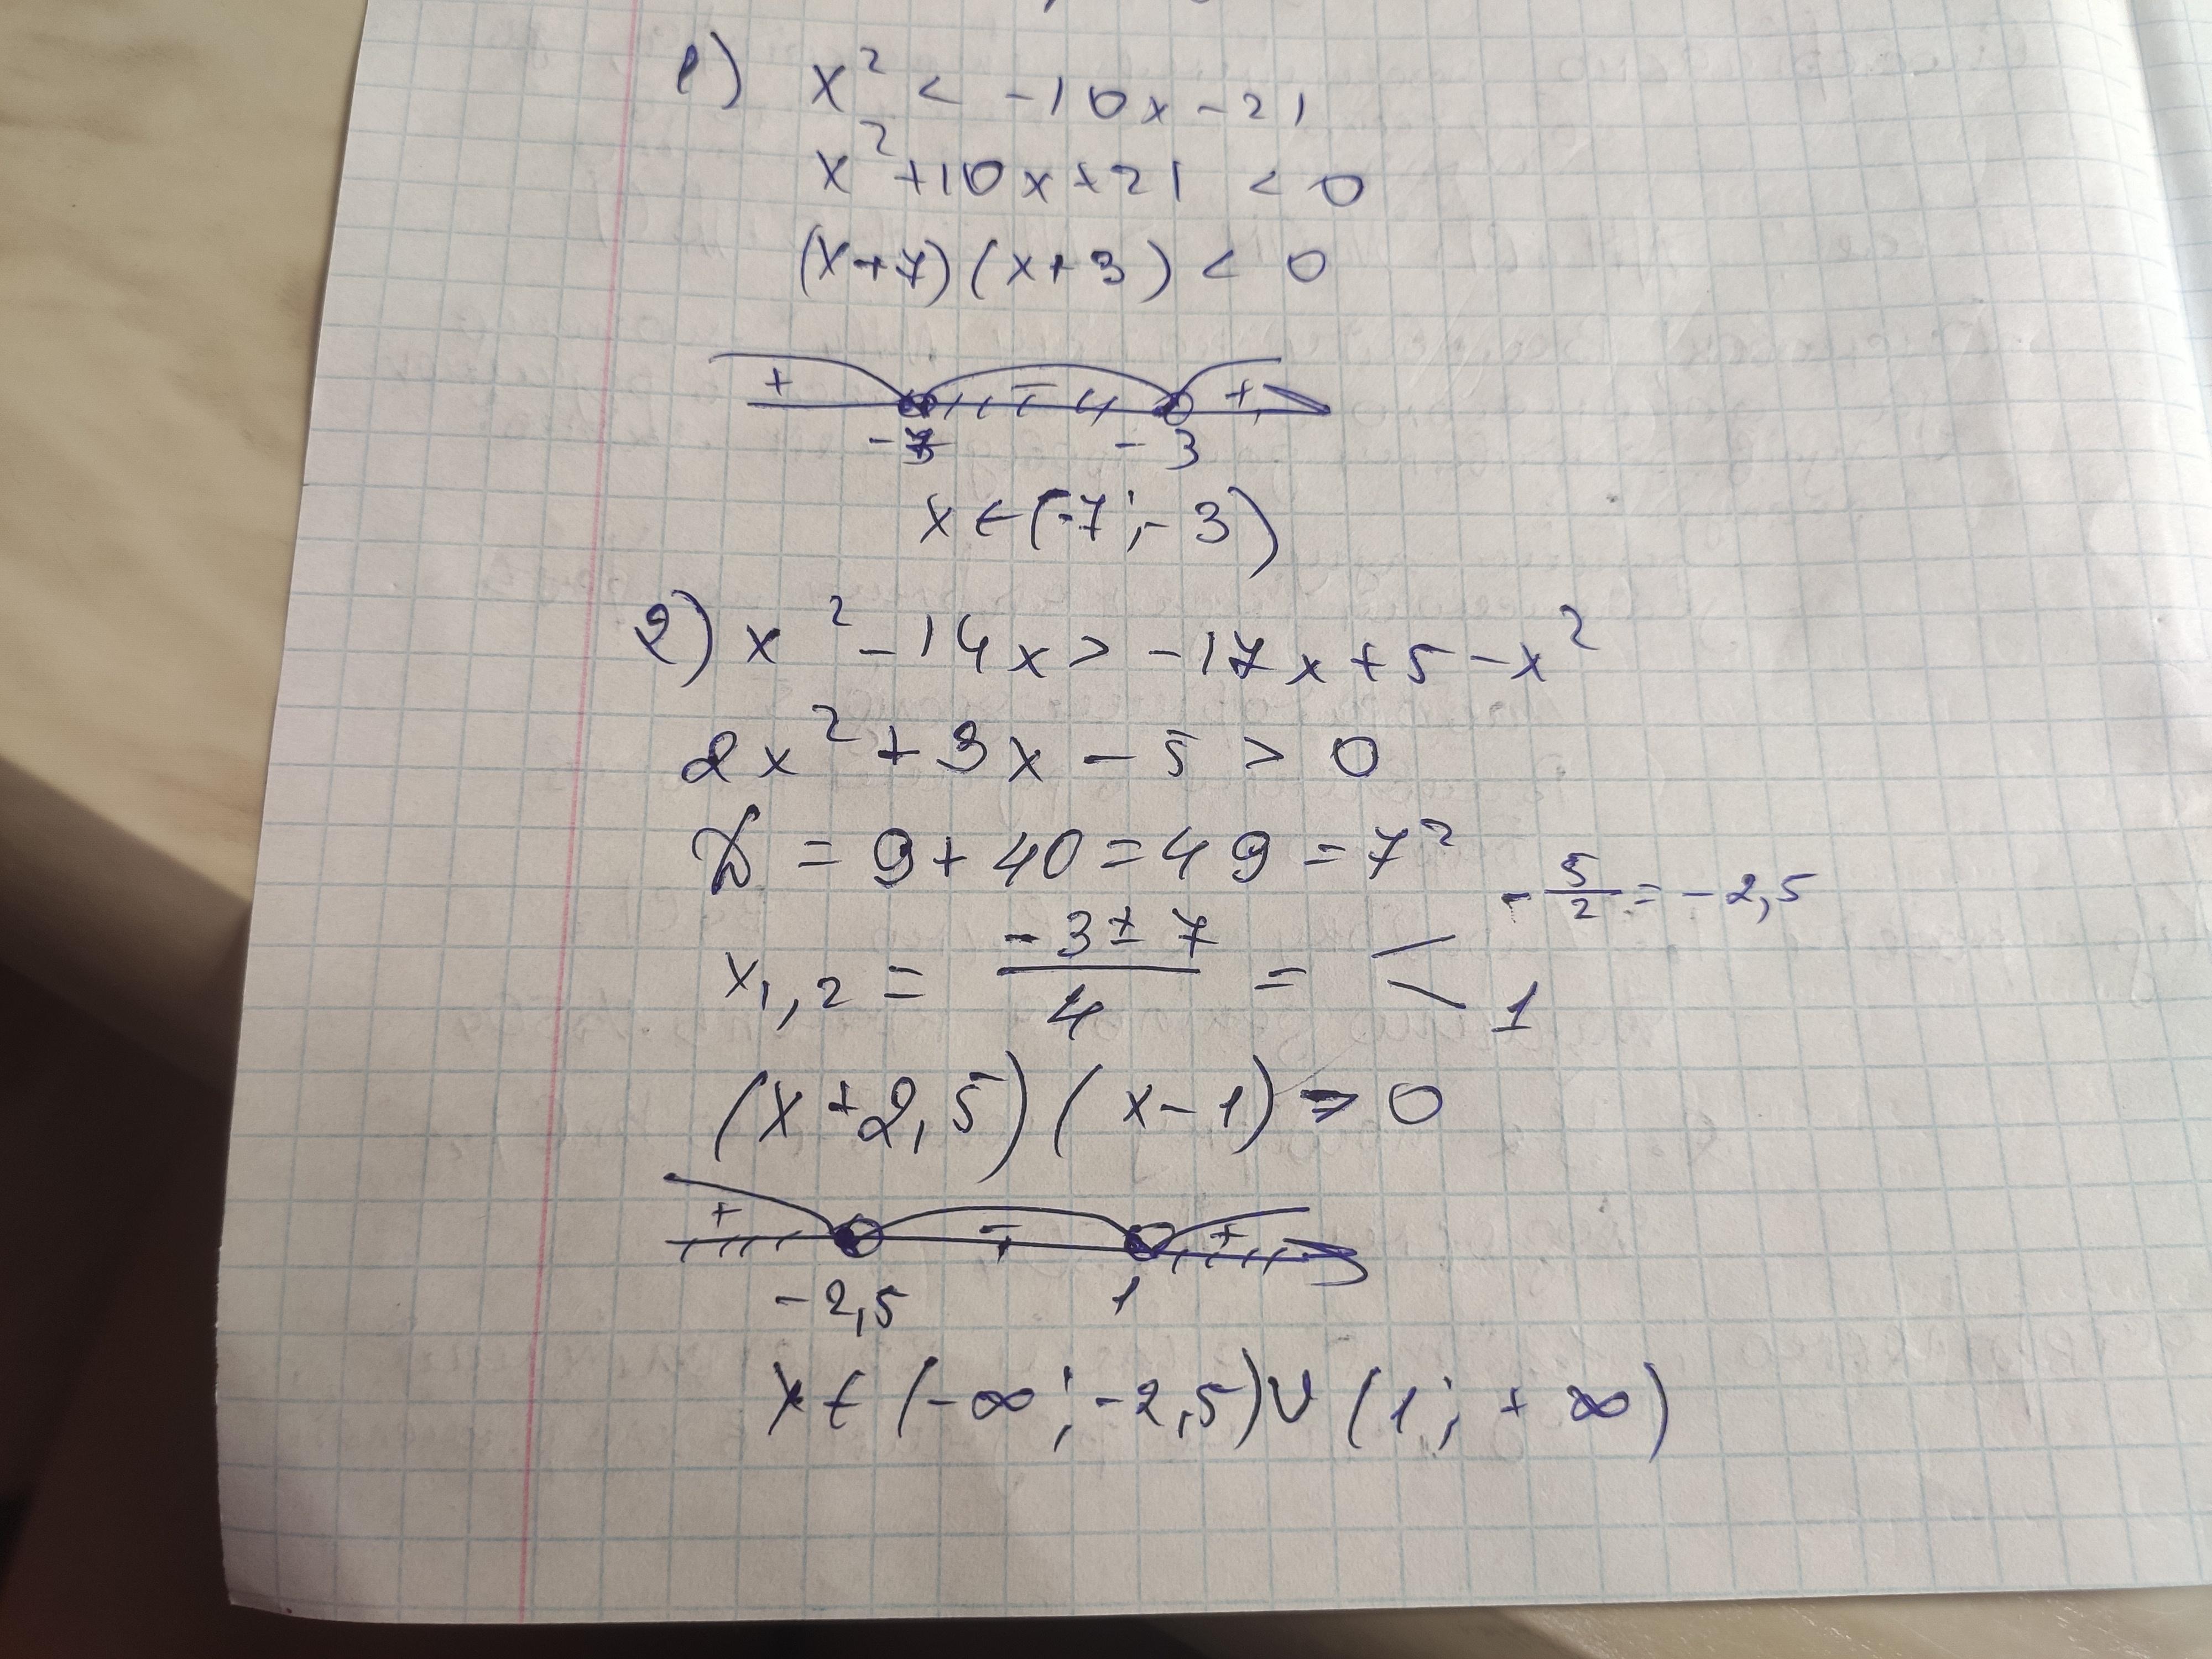 1) x² < -10x-21
x²+10x+21 < 0
(x+7)(x+3) < 0
+ - +
-7 -3
x ∈ (-7; -3)
2) x² - 14x > -17x + 5 - x²
2x² + 3x - 5 > 0
D = 9 + 40 = 49 = 7²
x1,2 = (-3 ± 7)/4 = < -5/2 = -2,5
1
(x+2,5)(x-1) > 0
+ - +
-2,5 1
x ∈ (-∞; -2,5) ∪ (1; +∞)